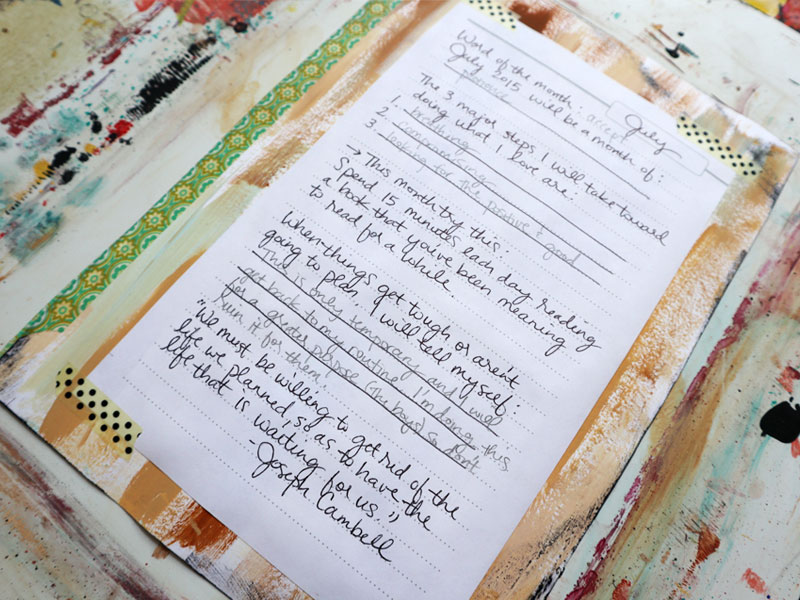 July
Word of the month: accept
July 2015 will be a month of:
The 3 major steps I will take toward
doing what I love are:
1. breathing
2.
3. looking for the positive & good
→ This month try this:
Spend 15 minutes each day reading
a book that you've been meaning
to read for a while.
When things get tough or aren't
going to plan, I will tell myself:
This is only temporary and I will
get back to my routine. I'm doing this
for a greater purpose (the boys) so don't
ruin it for them.
"We must be willing to get rid of the
life we planned, so as to have the
life that is waiting for us."
-Joseph Cambell